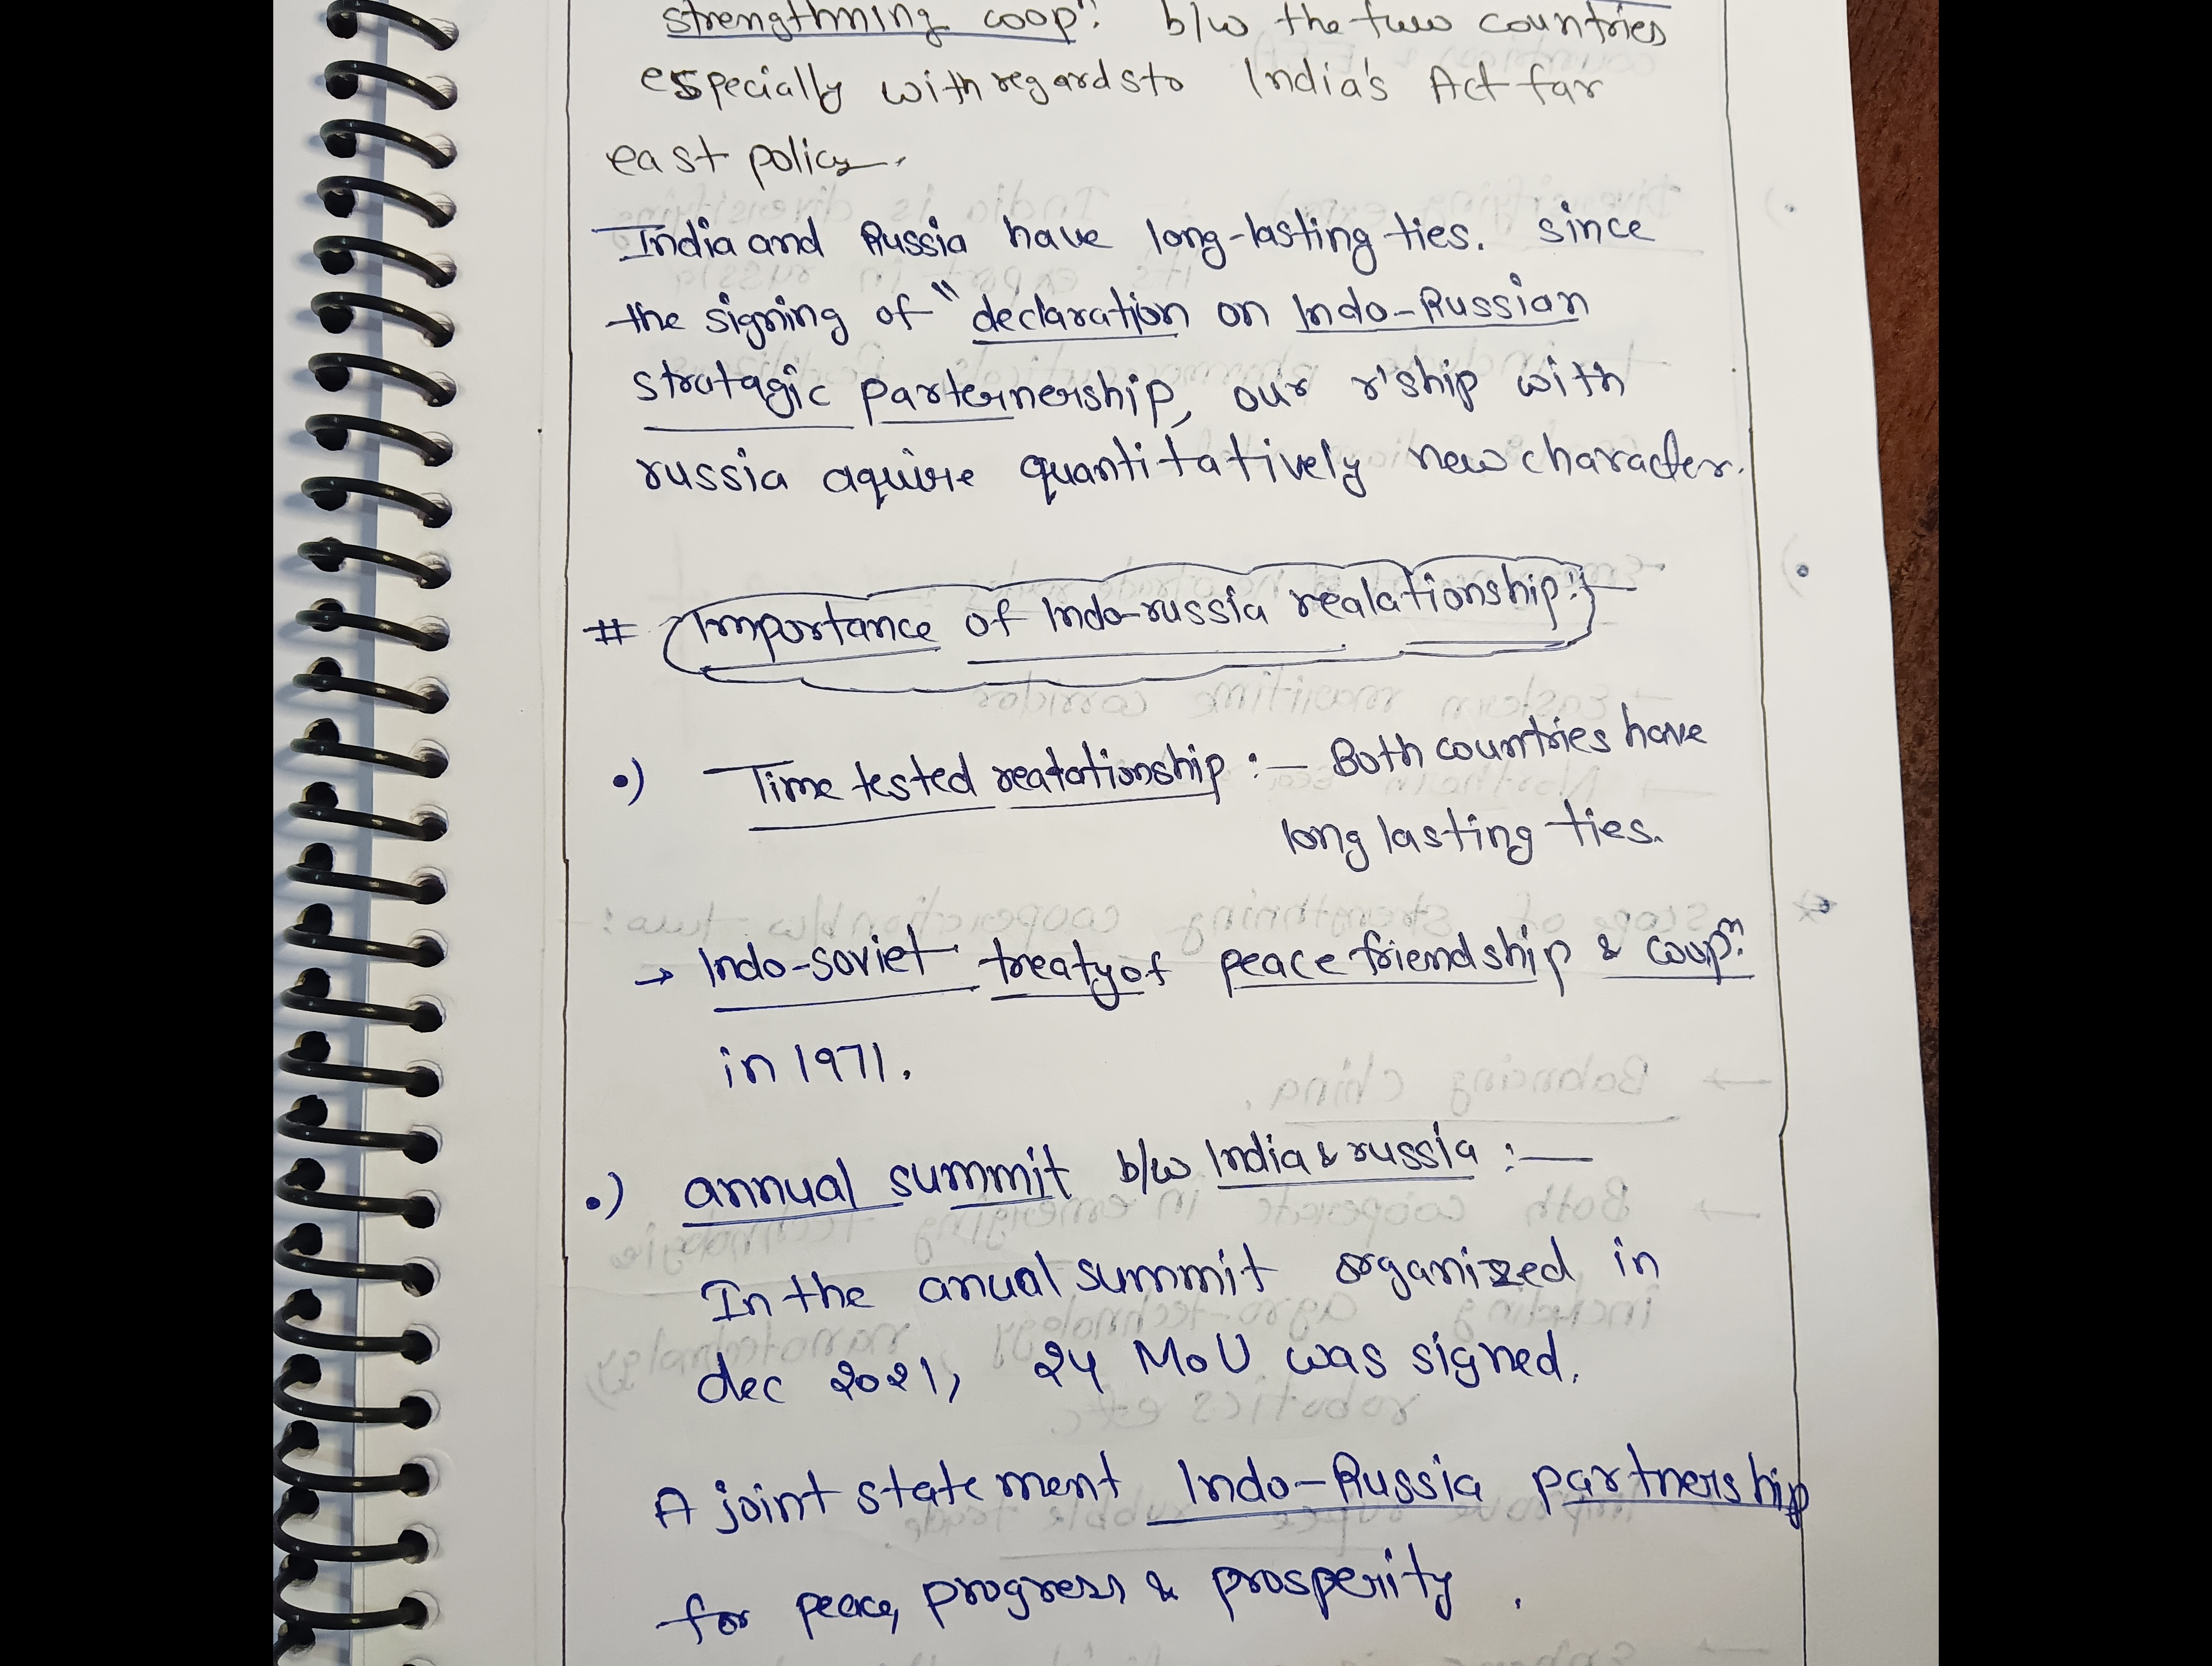 strengthning coopⁿ. b/w the two countries
especially with regards to India's Act far
east policy.
India and Russia have long-lasting ties. since
the signing of "declaration on Indo-Russian
stratagic parternership, our r'ship with
russia aquire quantitatively new character.
# Importance of Indo-russia realationship:-
•) Time tested reatationship :- Both countries have
long lasting ties.
→ Indo-soviet treaty of peace friendship & coopⁿ.
in 1971.
•) annual summit b/w India & russia :-
In the anual summit organized in
dec 2021, 24 MoU was signed.
A joint statement Indo-Russia partnership
for peace, progress & prosperity.